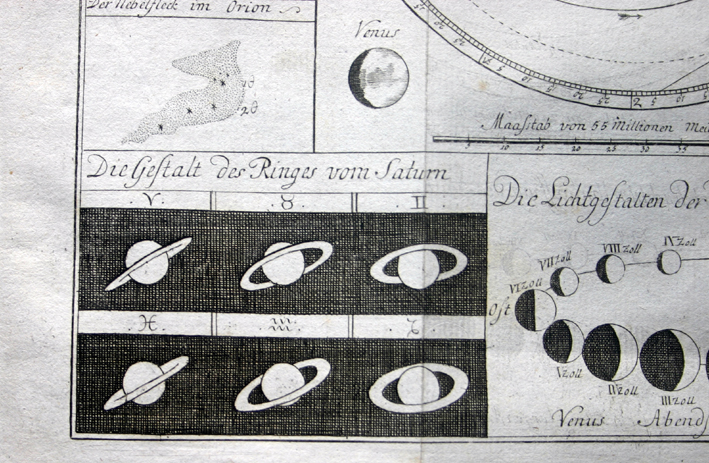 Der Nebelfleck im Orion
1θ
2θ
Venus
5 10 25 2 5
Maaſstab von 55 Millionen
5 10 15 20 25 30 35
Die Geſtalt des Ringes vom Saturn
♈ ♉ ♊
♓
Die Lichtgeſtalten der
Oſt
VI zoll
VII zoll
VIII zoll
IX zoll
V zoll
IV zoll
III zoll
Venus